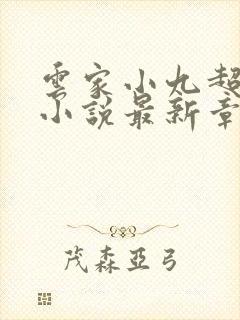 雲家小九超
小說最新章
茂森亞弓